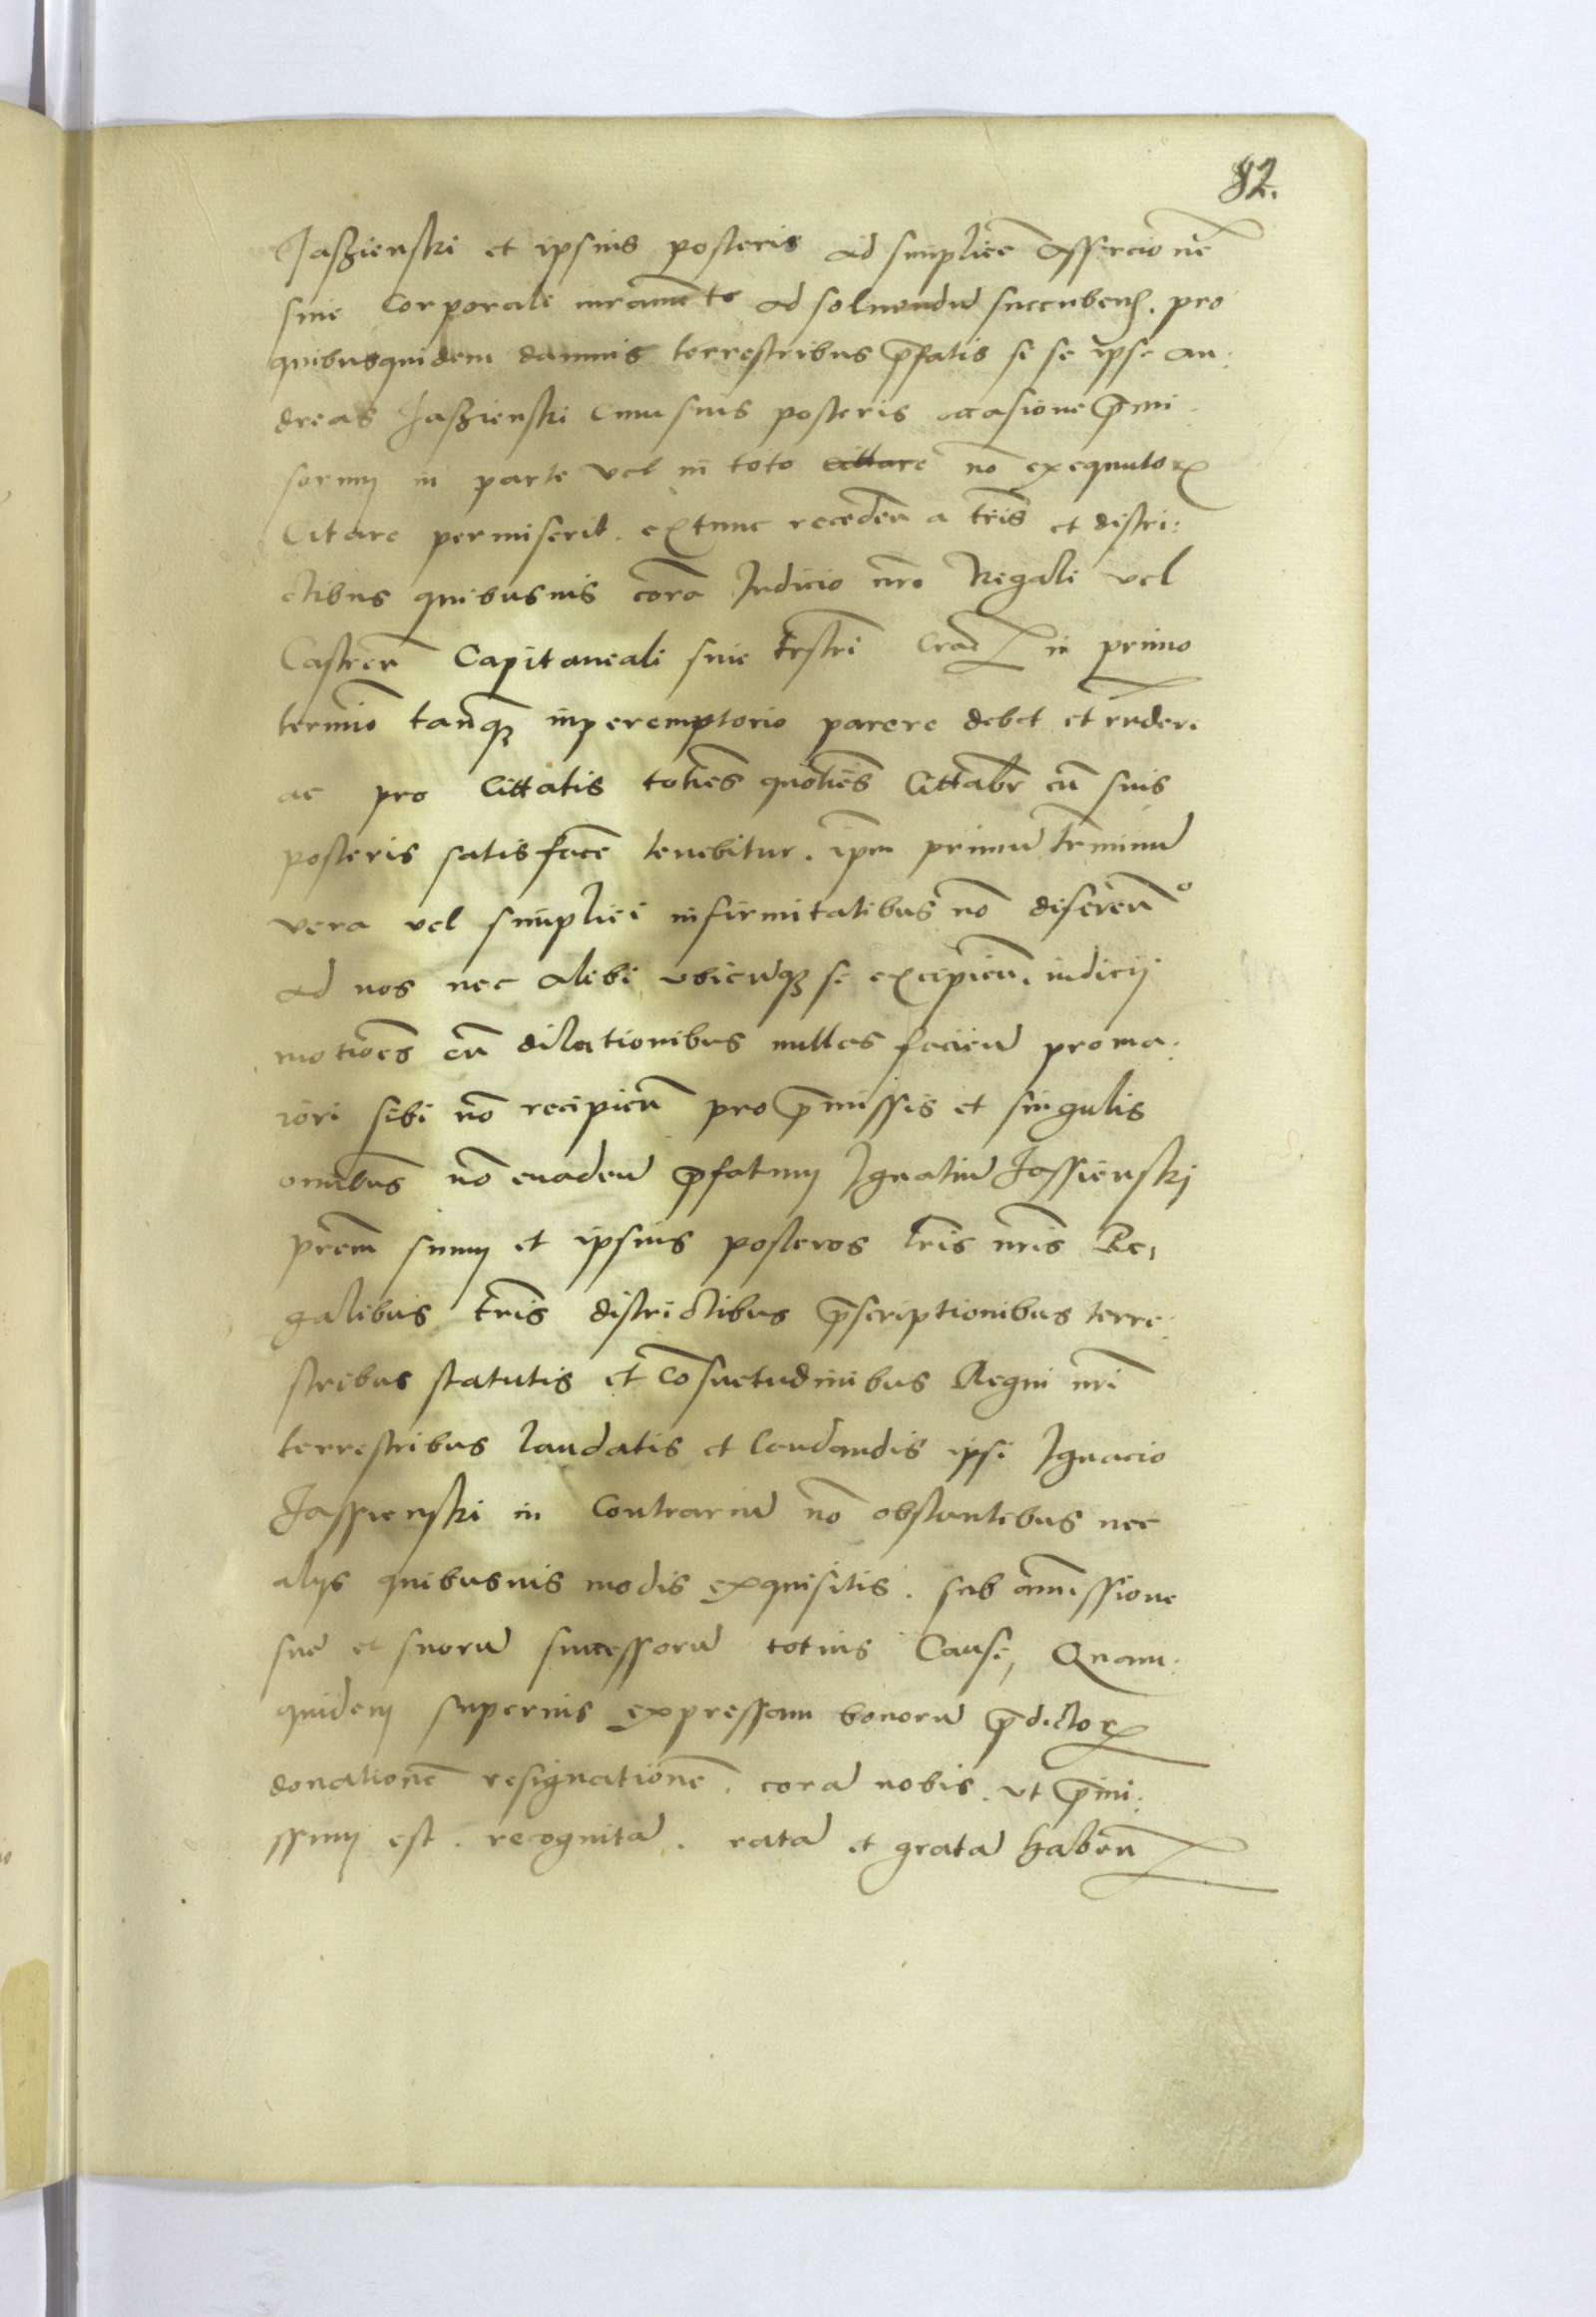 82.
Jaszienski et ipsius posteris ad simplicē assercionē
sine Corporale iuramēto ad soluendū succubeñ. pro
quibusquidem damnis terrestribus p̄fatis si se ipse An:
dreas Jaszienski cum suis posteris occasione p̄mi
sorum in parte vel in toto cittare nō exequutorꝝ
Citare permiserit. extunc recedeñ a terris et distri:
ctibus quibusuis corā Judicio nrō Regali vel
Castreñ Capitaneali siue trstri Crac in primo
termīo tanqꝫ inperemptorio parere debet et rñdere
ac pro Cittatis toties quoties Cittabr cū suis
posteris satisfacē tenebitur. ipm primū terminū
vera vel simplici infirmitatibus nō differeñ
ad nos nec alibi vbicūqꝫ se excipieñ. iudicij
motiões cū dilationibus nullas facieñ pro ma:
iori sibi nō recipieñ pro p̄missis et singulis
omībus nō euadeñ p̄fatum Ignatiū Jassienskj
prēm suum et ipsius posteros lris nris Re,
galibus tris districtibus p̄scriptionibus terre:
stribus statutis et cōsuetudinibus Regni nri
terrestribus laudatis et laudandis ipsi Ignacio
Jassienski in Contrariū nō obstantibus nec
alijs quibusuis modis exquisitis. sub amissione
sue et suorū successorū totius Cause, Quam:
quidem superius expressam bonorū p̄dictorꝝ
donationē resignationē. corā nobis. vt p̄mi:
ssum est. recognitā. ratā et gratā habeñ